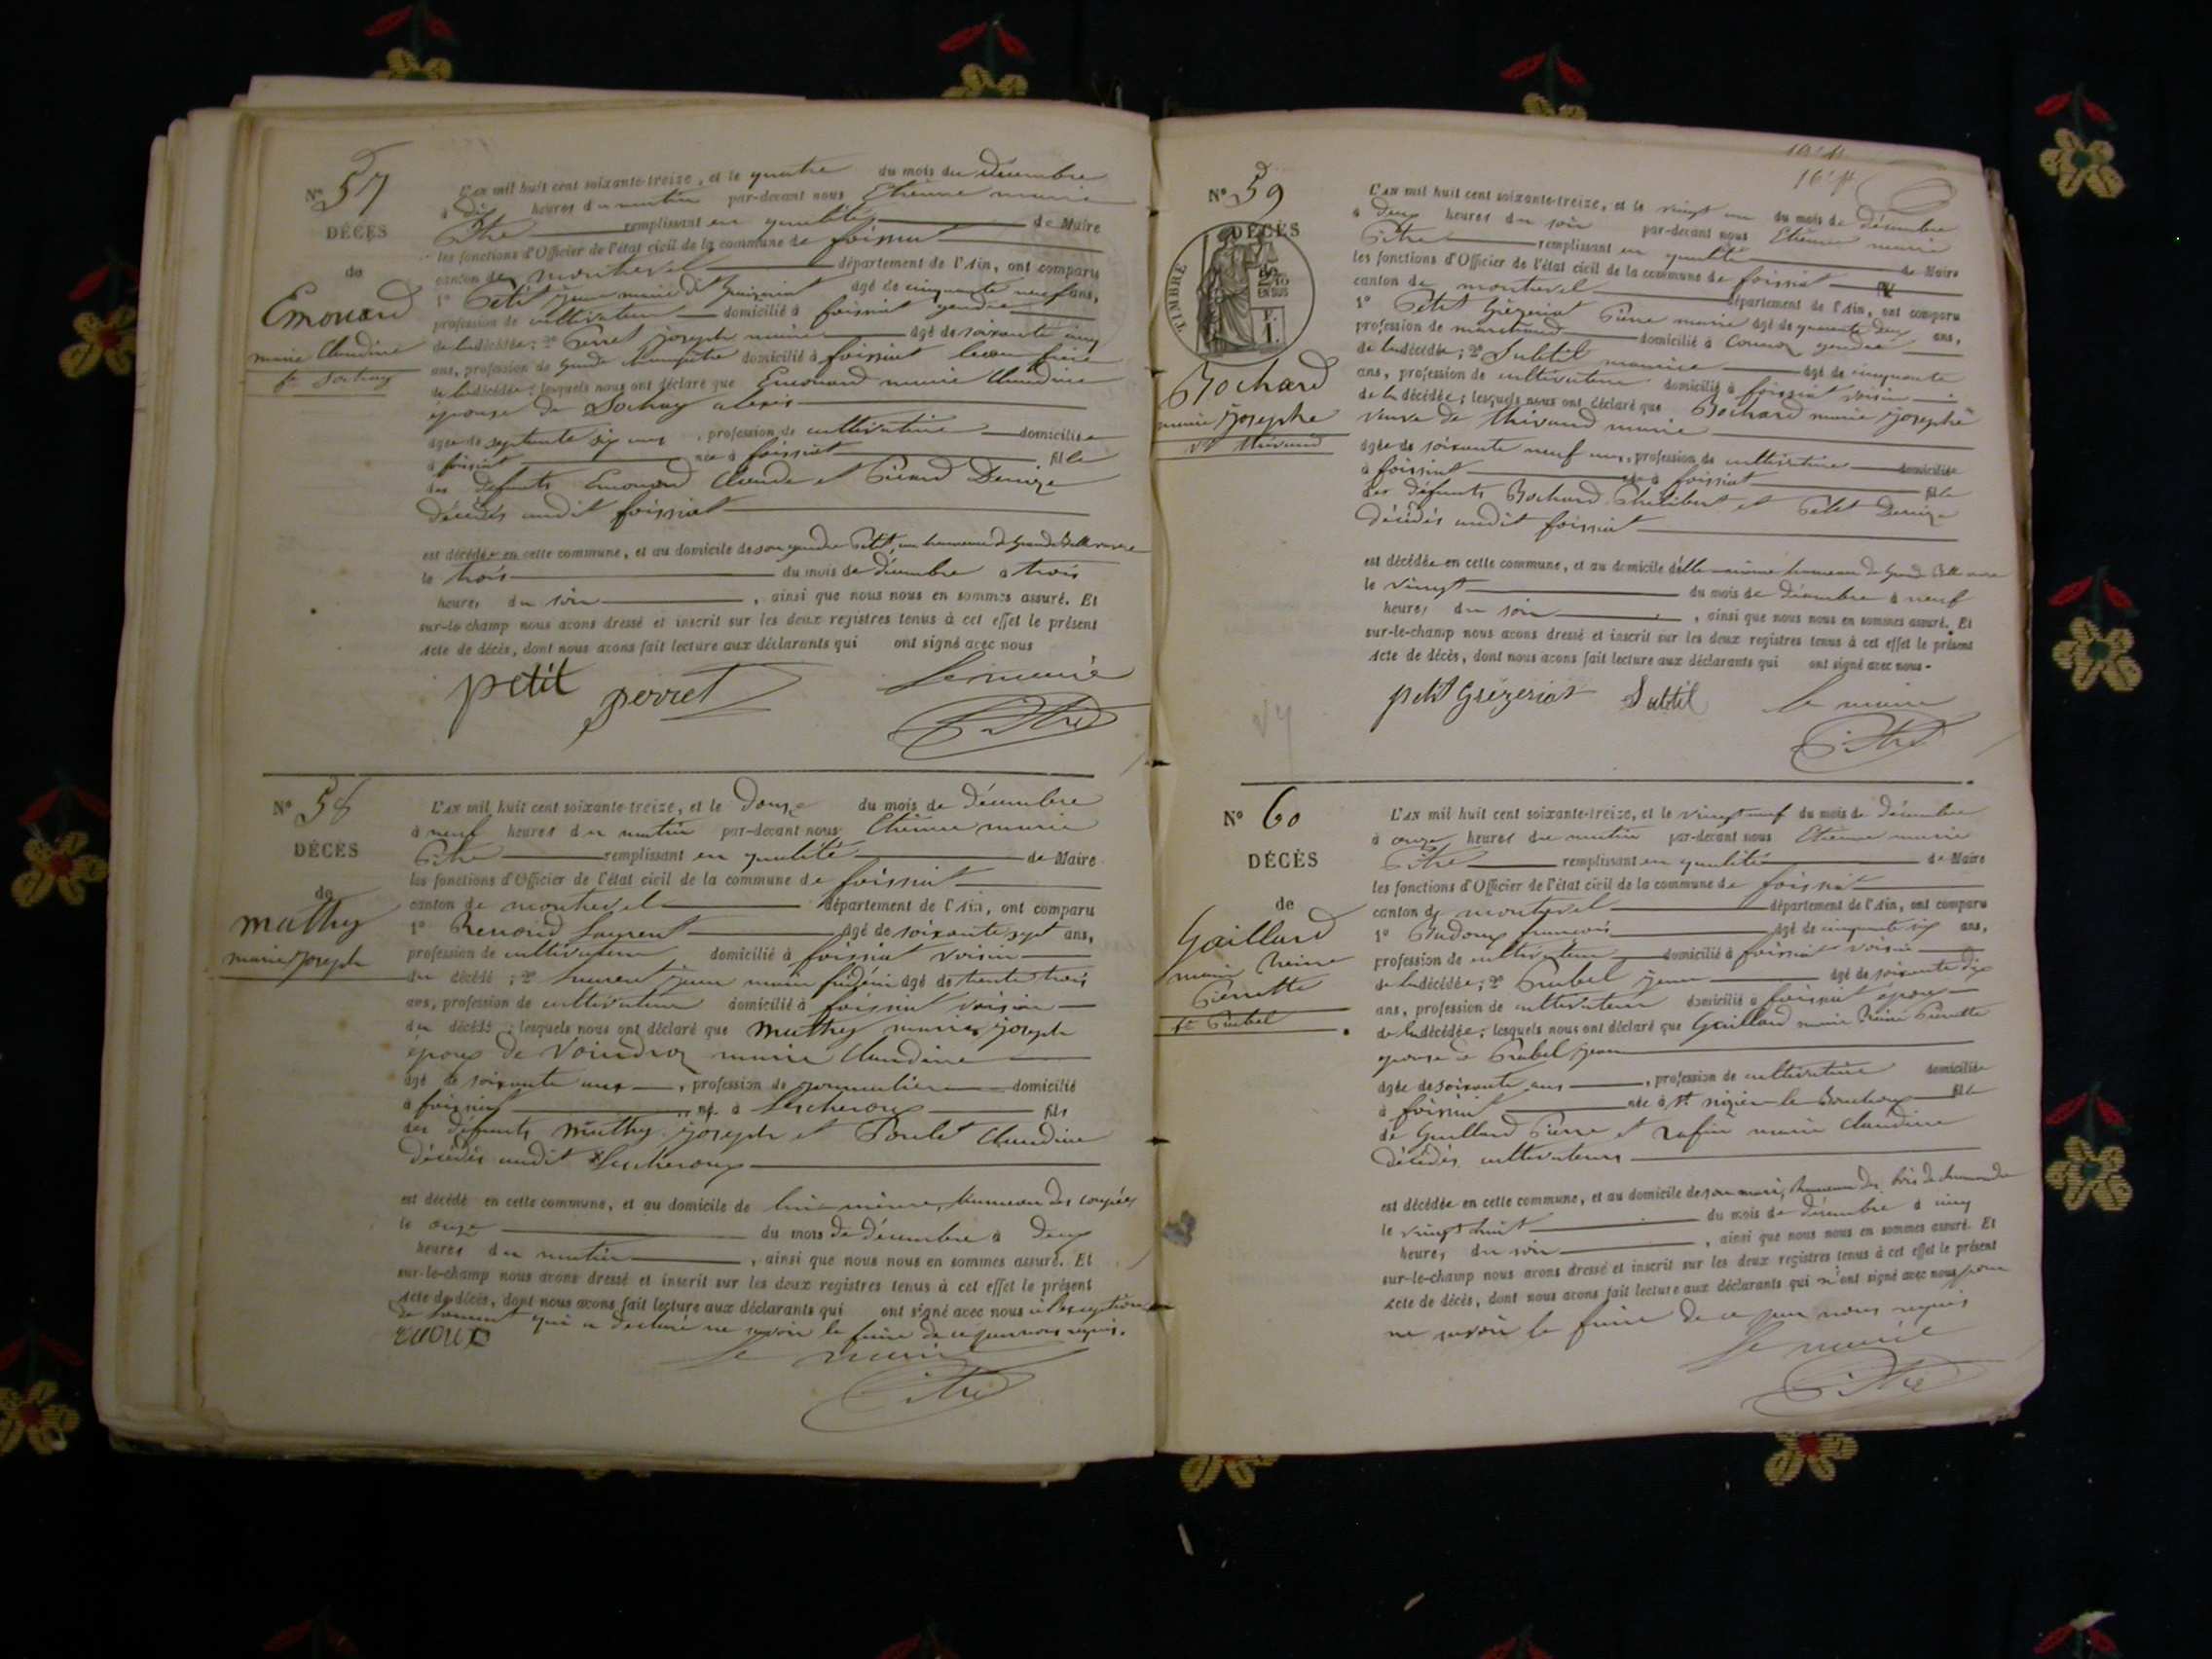 Nº 57
DÉCÈS
de
Emonard
marie Claudine
fe Sochay
L'AN mil huit cent soixante-treize, et le quatre du mois de décembre
à dix heures du matin par-devant nous Etienne marie
Pitre remplissant en qualité de Maire
les fonctions d'Officier de l'état civil de la commune de foissiat
canton de montrevel département de l'Ain, ont comparu
1º Petit Jean marie dit agé de cinquante neuf ans,
profession de cultivateur domicilié à foissiat gendre
de la décédée; 2º Perret joseph marie agé de soixante cinq
ans, profession de garde champêtre domicilié à foissiat beau frère
de la décédée; lesquels nous ont déclaré que Emonard marie Claudine
épouse de Sochay alexis
agée de septante six ans, profession de cultivatrice domiciliée
à foissiat née à foissiat fille
des défunts Emonard Claude et Picard Denize
décédés audit foissiat
est décédée en cette commune, et au domicile de son gendre Petit, au hameau de Grande Bellevavre
le trois du mois de décembre à trois
heures du soir, ainsi que nous nous en sommes assuré. Et
sur-le-champ nous avons dressé et inscrit sur les deux registres tenus à cet effet le présent
acte de décès, dont nous avons fait lecture aux déclarants qui ont signé avec nous
petit perret Le maire
Pitre
Nº 58
DÉCÈS
de
mathy
marie joseph
L'AN mil huit cent soixante-treize, et le douze du mois de décembre
à neuf heures du matin par-devant nous Etienne marie
Pitre remplissant en qualité de Maire
les fonctions d'Officier de l'état civil de la commune de foissiat
canton de montrevel département de l'Ain, ont comparu
1º Renoud Laurent agé de soixante sept ans,
profession de cultivateur domicilié à foissiat voisin
du décédé; 2º Laurent jean marie agé de trente trois
ans, profession de cultivateur domicilié à foissiat voisin
du décédé; lesquels nous ont déclaré que mathy marie joseph
époux de Voindroz marie Claudine
agé de soixante ans, profession de journalier domicilié
à foissiat né à Lescheroux fils
des défunts mathy joseph et Poulet Claudine
décédés audit Lescheroux
est décédé en cette commune, et au domicile de lui même, hameau des coupées
le onze du mois de décembre à deux
heures du matin, ainsi que nous nous en sommes assuré. Et
sur-le-champ nous avons dressé et inscrit sur les deux registres tenus à cet effet le présent
acte de décès, dont nous avons fait lecture aux déclarants qui ont signé avec nous à l'exception
de Laurent qui a déclaré ne savoir le faire de ce par nous requis.
Le maire
Pitre
Nº 59
DÉCÈS
de
TIMBRE
2/10
EN SUS
F.
1.
Bochard
marie josephe
ve thivaud
L'AN mil huit cent soixante-treize, et le vingt un du mois de décembre
à deux heures du soir par-devant nous Etienne marie
Pitre remplissant en qualité de Maire
les fonctions d'Officier de l'état civil de la commune de foissiat
canton de montrevel département de l'Ain, ont comparu
1º Petit Grézeriat Pierre marie agé de quarante deux ans,
profession de marchand domicilié à gendre
de la décédée; 2º Subtil maurice agé de cinquante
ans, profession de cultivateur domicilié à foissiat voisin
de la décédée; lesquels nous ont déclaré que Bochard marie josephe
veuve de thivaud marie
agée de soixante neuf ans, profession de cultivatrice domiciliée
à foissiat née à foissiat fille
des défunts Bochard Philibert et Petit Denize
décédés audit foissiat
est décédée en cette commune, et au domicile d'elle-même hameau de Grande Bellevavre
le vingt du mois de décembre à neuf
heures du soir, ainsi que nous nous en sommes assuré. Et
sur-le-champ nous avons dressé et inscrit sur les deux registres tenus à cet effet le présent
acte de décès, dont nous avons fait lecture aux déclarants qui ont signé avec nous.
petit Grézeriat Subtil le maire
Pitre
Nº 60
DÉCÈS
de
Gaillard
marie Reine
Pierrette
fe Prabel
L'AN mil huit cent soixante-treize, et le vingt neuf du mois de décembre
à onze heures du matin par-devant nous Etienne marie
Pitre remplissant en qualité de Maire
les fonctions d'Officier de l'état civil de la commune de foissiat
canton de montrevel département de l'Ain, ont comparu
1º Badoux françois agé de cinquante six ans,
profession de cultivateur domicilié à foissiat voisin
de la décédée; 2º Prabel jean agé de soixante dix
ans, profession de cultivateur domicilié à foissiat époux
de la décédée; lesquels nous ont déclaré que Gaillard marie Reine Pierrette
épouse de Prabel jean
agée de soixante ans, profession de cultivatrice domiciliée
à foissiat née à St nizier le Bouchoux fille
de Gaillard Pierre et rafin marie Claudine
décédés cultivateurs
est décédée en cette commune, et au domicile de son mari, hameau du bois de
le vingt huit du mois de décembre à cinq
heures du soir, ainsi que nous nous en sommes assuré. Et
sur-le-champ nous avons dressé et inscrit sur les deux registres tenus à cet effet le présent
acte de décès, dont nous avons fait lecture aux déclarants qui n'ont signé avec nous pour
ne savoir le faire de ce par nous requis
Le maire
Pitre